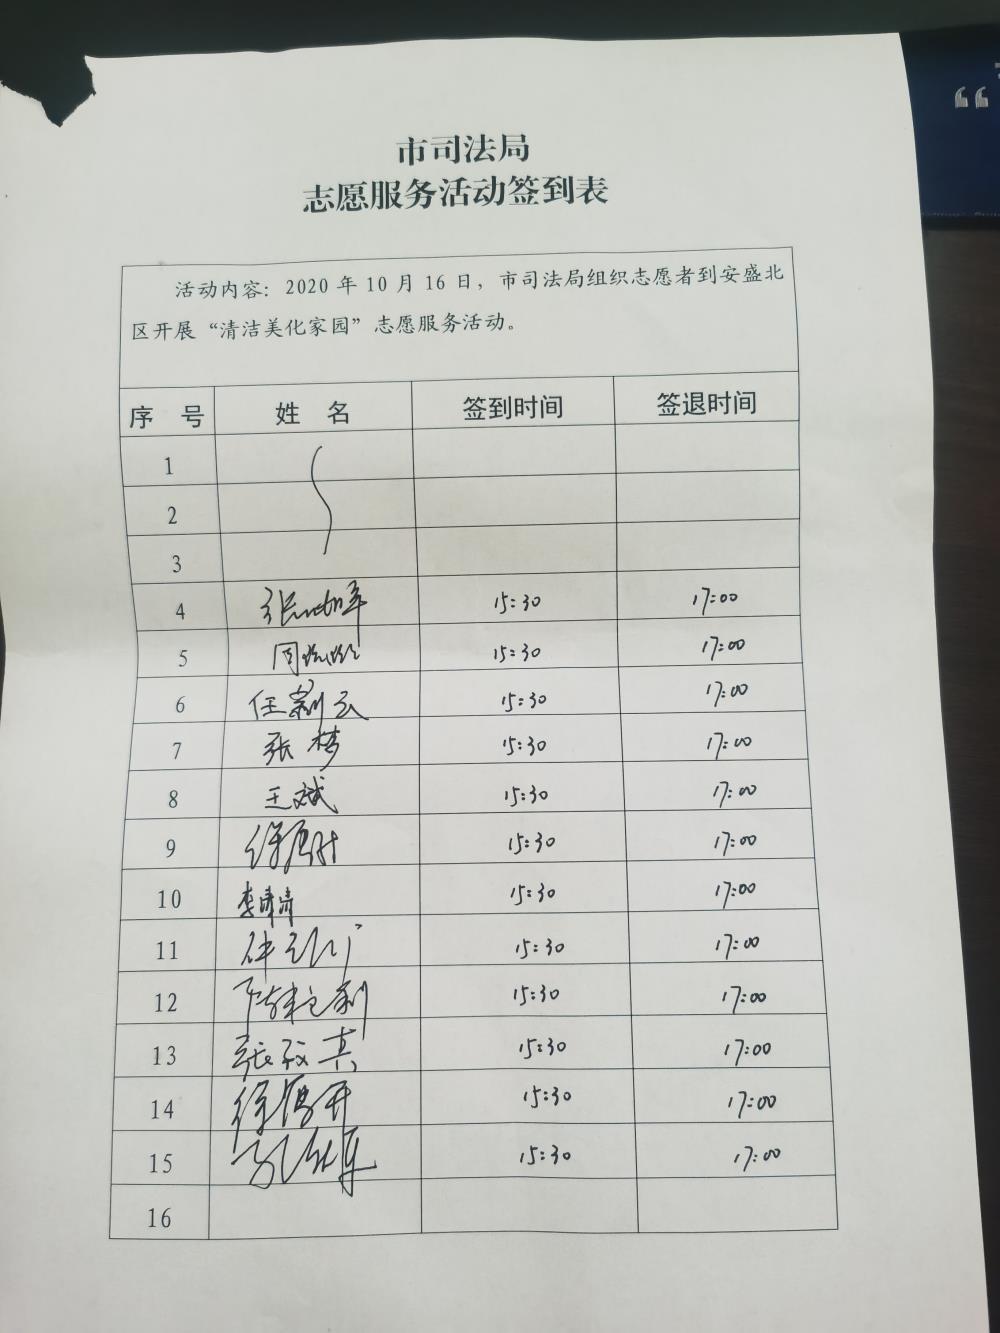 市司法局
志愿服务活动签到表
活动内容：2020 年 10 月 16 日，市司法局组织志愿者到安盛北
区开展“清洁美化家园”志愿服务活动。
序 号 姓 名 签到时间 签退时间
1
2
3
4 15:30 17:00
5 15:30 17:00
6 15:30 17:00
7 张梦 15:30 17:00
8 王斌 15:30 17:00
9 15:30 17:00
10 李清清 15:30 17:00
11 15:30 17:00
12 15:30 17:00
13 15:30 17:00
14 15:30 17:00
15 15:30 17:00
16
“